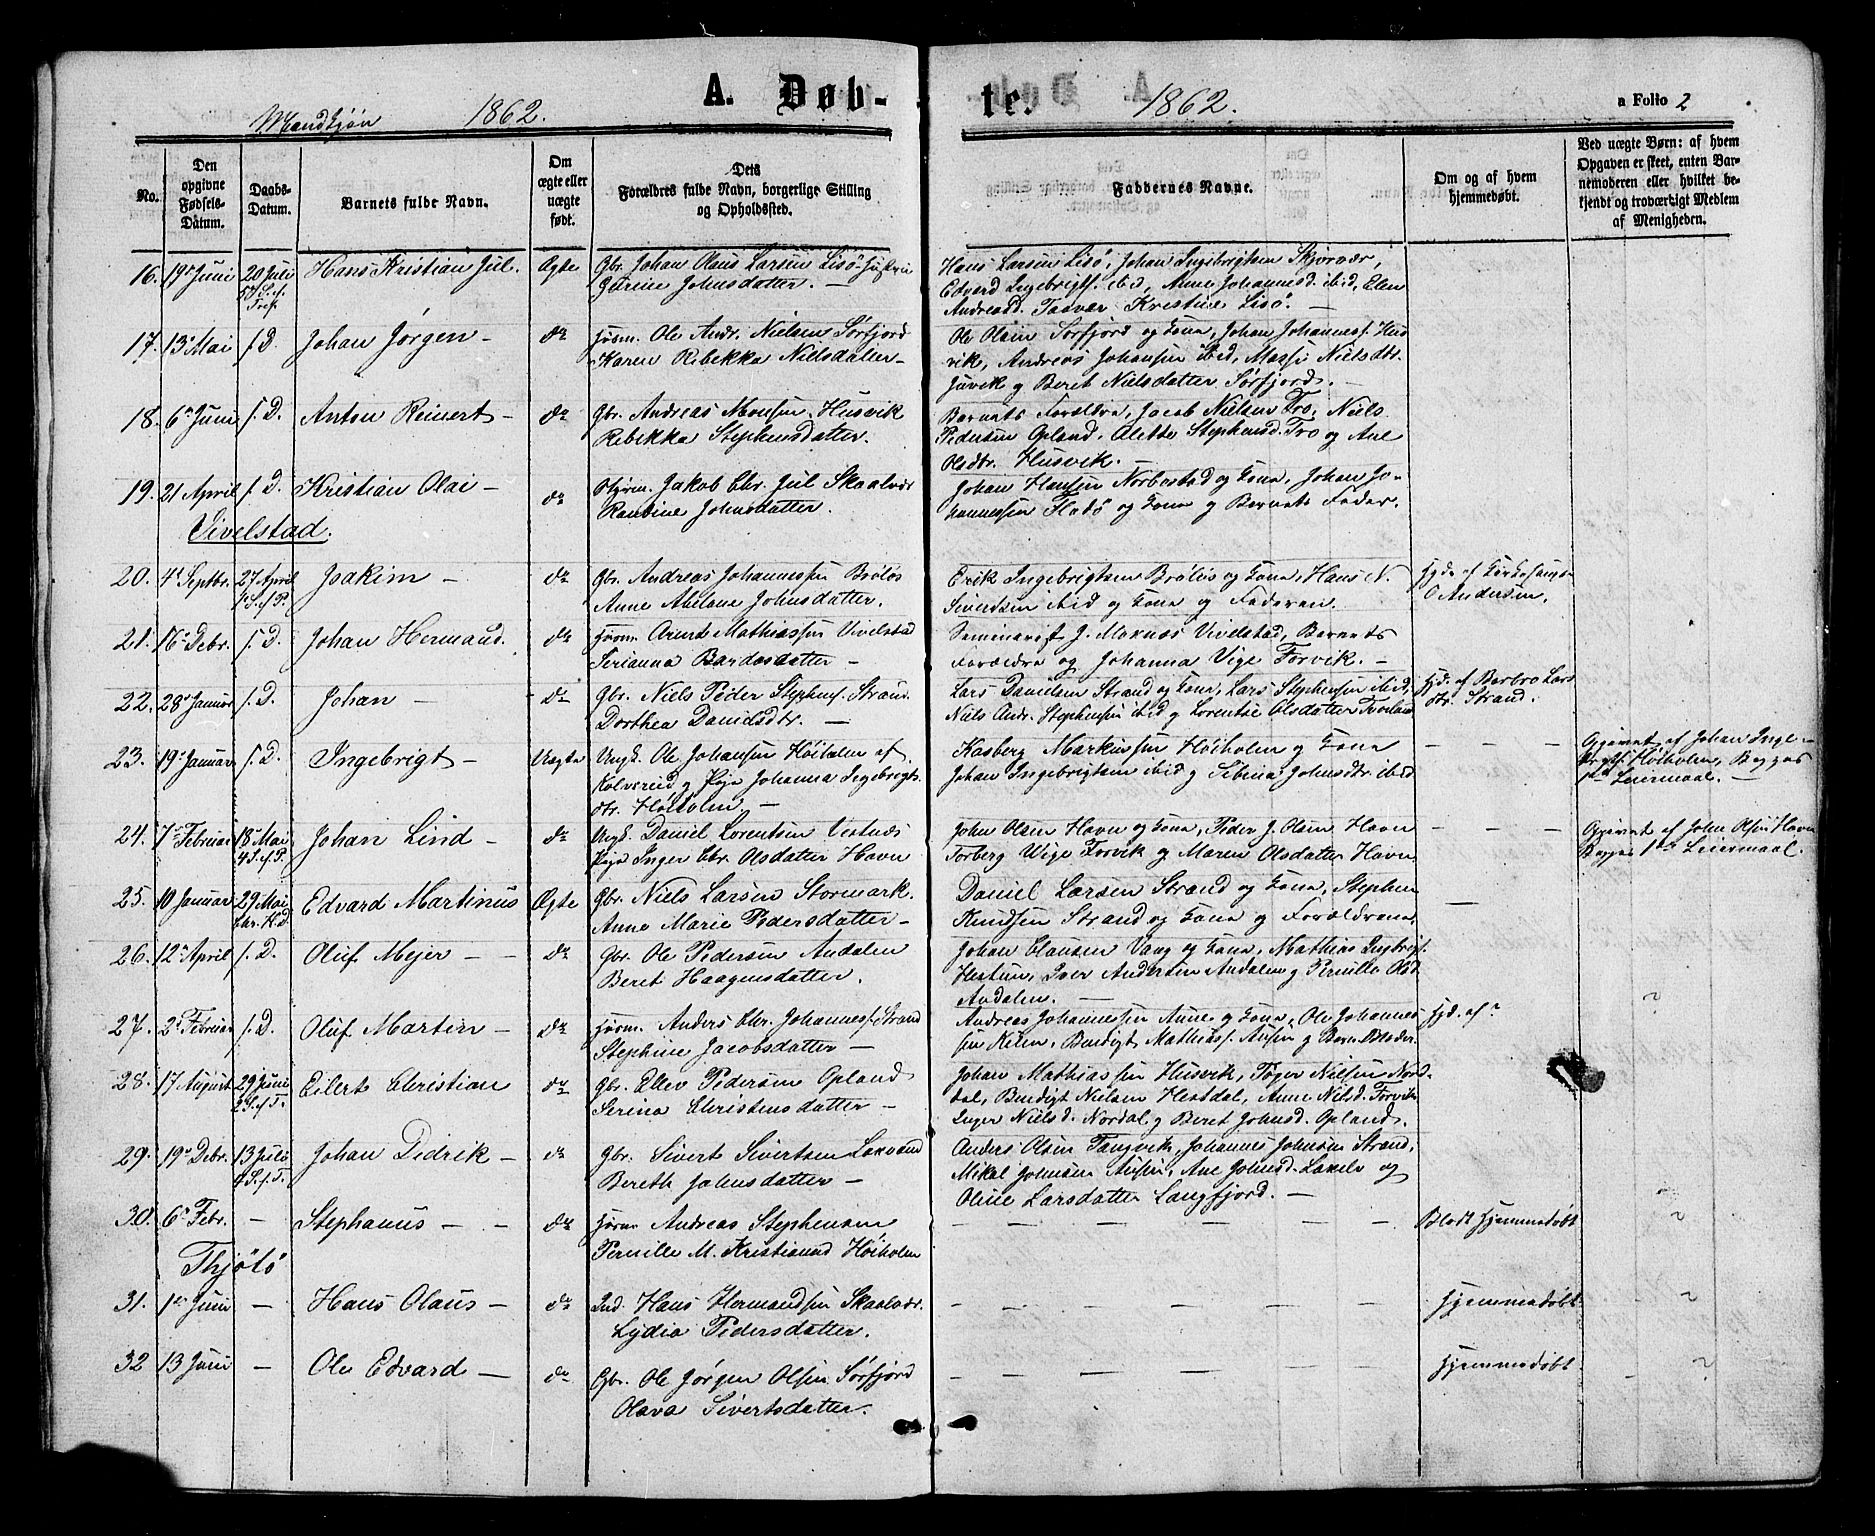 A. Døb-
te.
Mandkjøn 1862.
1862.
a Folio 2
No.
Den opgivne Fødsels-Datum.
Daabs-Datum.
Barnets fulde Navn.
Om ægte eller uægte født.
Dets Forældres fulde Navn, borgerlige Stilling og Opholdssted.
Faddernes Navne.
Om og af hvem hjemmedøbt.
Ved uægte Børn: af hvem Opgaven er skeet, enten Barnemoderen eller hvilket bekjendt og troværdigt Medlem af Menigheden.
16. 19 Juni 20 Juli Hans Kristian Jul. Ægte Gbr. Johan Olaus Larsen Lisö
Johnsdatter. —
Hans Larsen Lisö, Johan Ingebrigtsen Skjærvær,
Edvard Ingebrigts. ibid, Anne Johannesd. ibid, Elen
Andreasd. Kristine Lisö. —
17. 13 Mai s. D. Johan Jørgen — do Ole Andr. Nielsen Sørfjord
Karen Ribekka Nielsdatter —
Ole Olsen Sørfjord og Kone, Johan Johanness. Hus
vik, Andreas Johansen ibid, Nielsdtr.
g Beret Nielsdatter, Sørfjord. —
18. 6 Juni s. D. Anton Reinert — do Gbr. Andreas Monsen Husvik
Ribekka Stephensdatter.
Barnets Forældre, Jacob Nielsen Tro, Niels
Pedersen Opland, Olette Stephensd. Tro og Ane
Olsdtr. Husvik. —
19. 21 April s. D. Kristian Olai — do Jakob Chr. Jul Skaalvær
Johnsdatter.
Johan Hansen og Kone, Johan Jo-
hannessen Flodö og Kone g Barnets Fader.
Vivelstad.
20. 4 Septbr. 27 April Joakim — do Gbr. Andreas Johannessen Bröløs
Anne Abelone Johnsdatter.
Erik Ingebrigtsen Bröløs og Kone, Hans N.
Sivertsen ibid og Kone og Faderen.
Hjd. af Kirkesanger
O Andersen.
21. 16 Debr. s. D. Johan Hermand. do Arent Mathiassen Vivelstad
Serianna Bardosdatter —
Seminarist J. Moxnes Vivelstad, Barnets
Forældre og Johanna Vige Forvik. —
22. 28 Januar s. D. Johan — do Gbr. Niels Peder Stephens. Strand
Dorthea Danielsdtr. —
Lars Danielsen Strand og Kone, Lars Stephensen ibid,
Niels Andr. Stephensen ibid g Lorentse Olsdatter
Hjd. af Barbro Lars
dtr. Strand.
23. 19 Januar s. D. Ingebrigt — Uægte Ungk. Ole Johansen Höiholm af
Kolvereid g Pige Johanna Ingebrigts
dtr. Höiholm. —
Kasberg Markussen Höiholm og Kone
Johan Ingebrigtsen ibid g Sibina Johnsdtr. ibid
— — —
Opgivet af Johan Inge-
brigts. Höiholm, Begges
1ste Leiermaal. —
24. 7 Februar 18 Mai Johan Lind — do Ungk. Daniel Lorentsen Vestnes
Pige Inger Chr. Olsdatter Havn
John Olsen Havn og Kone, Peder J. Olsen Havn
Torberg Wige Forvik og Maren Olsdatter Havn
— — —
Opgivet af John Olsen Havn
Begges 1ste Leiermaal.
25. 10 Januar 29 Mai Chr. H. D Edvard Martinus Ægte Gbr. Niels Larsen Stormark.
Anne Marie Pedersdatter —
Daniel Larsen Strand og Kone, Stephen
Knudsen Strand og Kone g Forældrene.
—
26. 12 April s. D. Oluf Mejer — — do Gbr. Ole Pedersen Andalen
Beret Haagensdatter.
Johan Clausen Vang og Kone, Mathias Ingebrigts.
Hestun, Iver Andersen Andalen g Pernille Olsd
Andalen. —
27. 2 Februar s. D. Oluf Martin — do Anders Chr. Johanness. Strand
Stephine Jacobsdatter —
Andreas Johannessen Aune g Kone, Ole Johannes
sen Kilen, Bendigt Mathiass. Ausen g Barn. Moder.
Hjd. af ?
28. 17 August 29 Juni Eilert Christian do Gbr. Ellev Pedersen Opland
Serina Christensdatter —
Johan Mathiassen Husvik, Toger Nielsen Nord-
dal, Bendigt Nielsen Hestdal, Anne Nilsd. Forvik
Inger Nielsd. Nordal g Beret Johnsd. Opland.
29. 19 Debr. 13 Juli Johan Didrik — do Gbr. Sivert Sivertsen
Bereth Johnsdatter —
Anders Olsen Tangvik, Johannes Johnsen Strand,
Mikal Johnsen Ausen, Ane Johnsd. og
Oline Larsdatter Langfjord. —
30. 6 Febr. — Stephanus — — do Andreas Stephensen
Pernille M. Kristiansd Höiholm
Blodt Hjemmedöbt
Thjötö
31. 1 Juni — Hans Olaus — do Ind. Hans Hermandsen Skaalvær.
Lydia Pedersdatter.
Hjemmedöbt
32 13 Juni — Ole Edvard — do Gbr. Ole Jörgen Olsen Sörfjord
Olava Sivertsdatter.
Hjemmedöbt